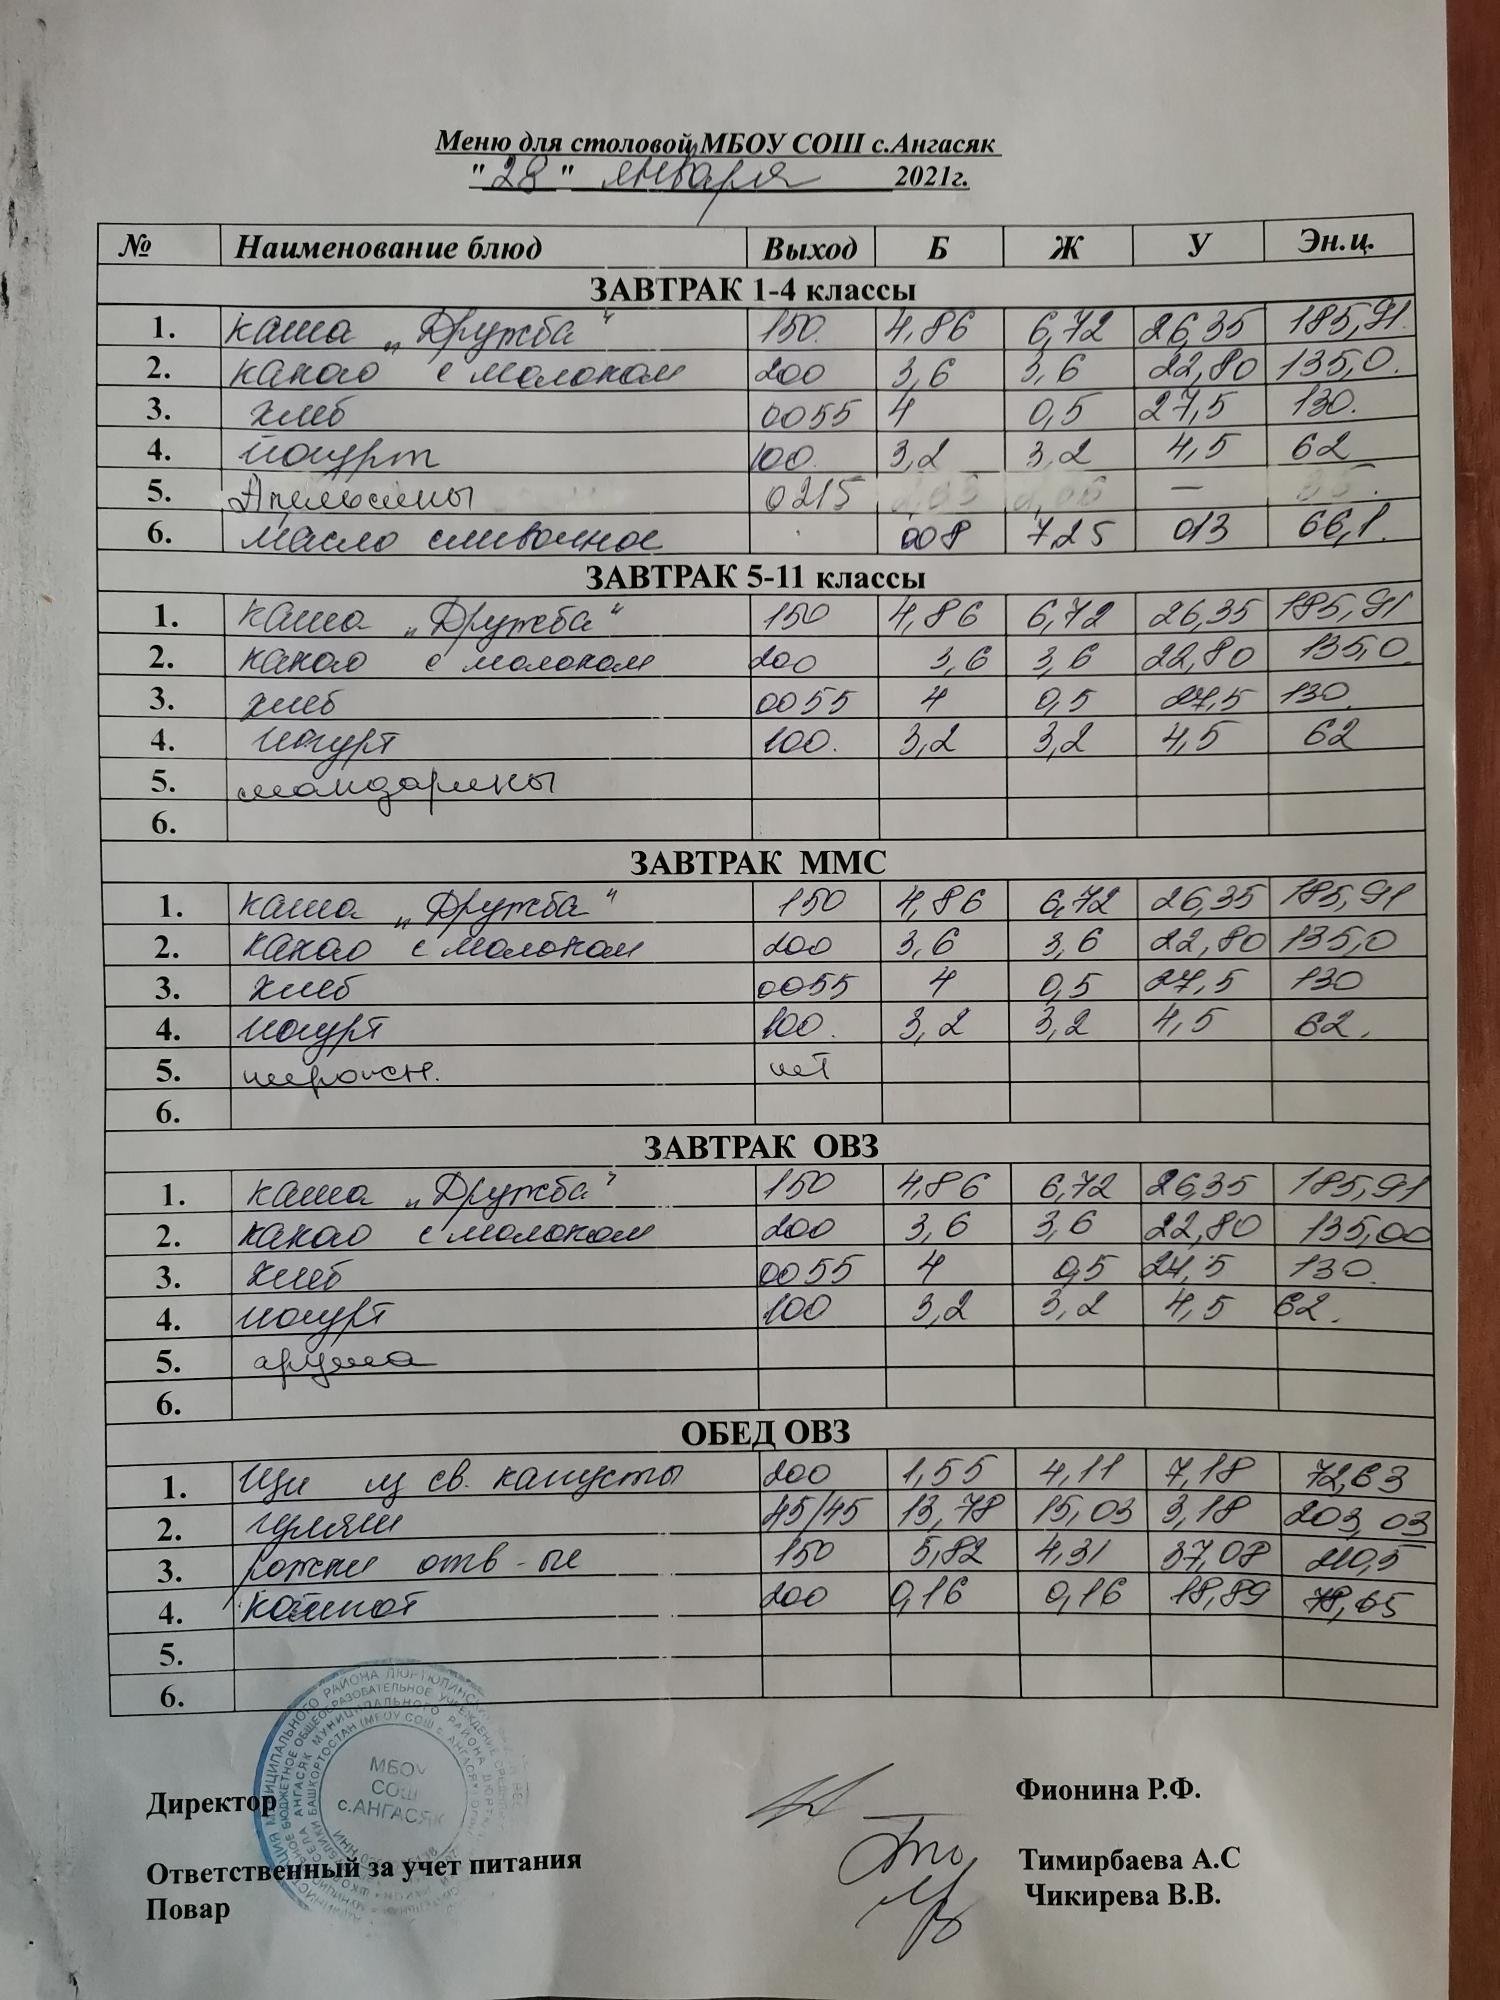 Меню для столовой МБОУ СОШ с.Ангасяк
"28" января 2021г.
№ Наименование блюд Выход Б Ж У Эн.ц.
ЗАВТРАК 1-4 классы
1. каша „Дружба" 150. 4,86 6,72 26,35 185,91.
2. какао с молоком 200 3,6 3,6 22,80 135,0.
3. хлеб 0055 4 0,5 27,5 130.
4. йогурт 100. 3,2 3,2 4,5 62
5. Апельсины 0215 —
6. масло сливочное 008 7,25 013 66,1.
ЗАВТРАК 5-11 классы
1. каша „Дружба" 150 4,86 6,72 26,35 185,91
2. какао с молоком 200 3,6 3,6 22,80 135,0.
3. хлеб 0055 4 0,5 27,5 130.
4. йогурт 100. 3,2 3,2 4,5 62
5. мандарины
6.
ЗАВТРАК ММС
1. каша „Дружба" 150 4,86 6,72 26,35 185,91
2. какао с молоком 200 3,6 3,6 22,80 135,0
3. хлеб 0055 4 0,5 27,5 130
4. йогурт 100. 3,2 3,2 4,5 62.
5. шт
6.
ЗАВТРАК ОВЗ
1. каша „Дружба" 150 4,86 6,72 26,35 185,91
2. какао с молоком 200 3,6 3,6 22,80 135,00
3. хлеб 0055 4 0,5 27,5 130.
4. йогурт 100 3,2 3,2 4,5 62.
5. груша
6.
ОБЕД ОВЗ
1. Щи из св. капусты 200 1,55 4,11 7,18 72,63
2. гуляш 45/45 13,78 15,03 3,18 203,03
3. рожки отв-ые 150 5,82 4,31 37,08 210,5
4. компот 200 0,16 0,16 18,89 78,65
5.
6.
МБОУ
СОШ
с.АНГАСЯК
Директор Фионина Р.Ф.
Ответственный за учет питания Тимирбаева А.С
Повар Чикирева В.В.